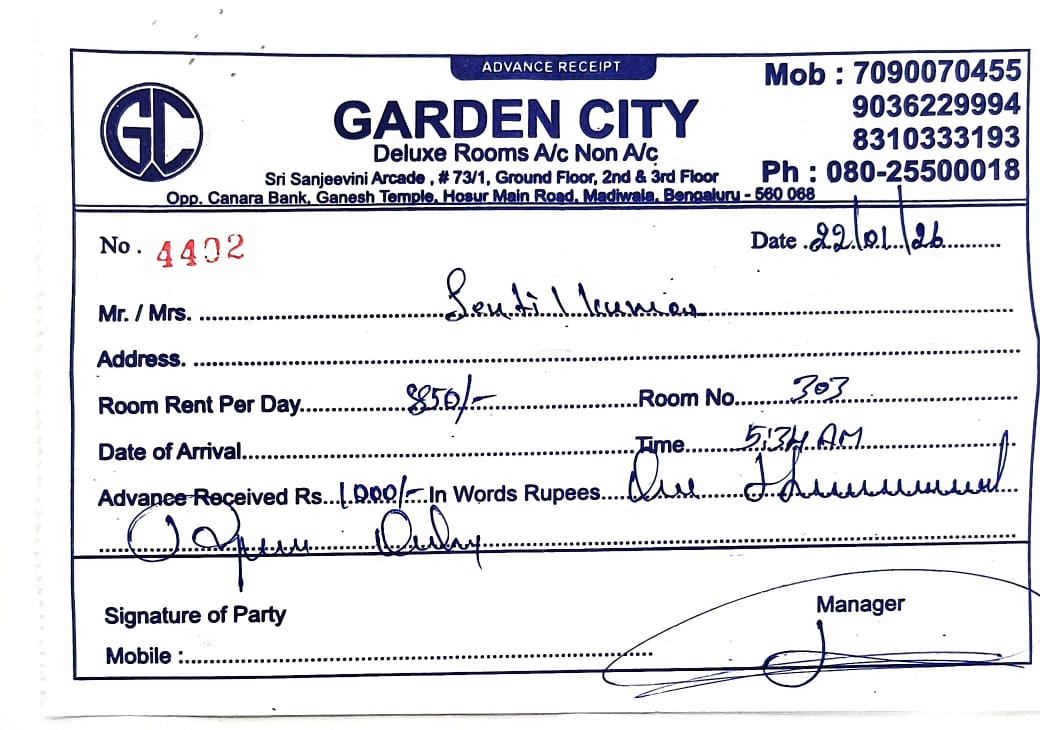 ADVANCE RECEIPT
GC
GARDEN CITY
Deluxe Rooms A/c Non A/c
Sri Sanjeevini Arcade , # 73/1, Ground Floor, 2nd & 3rd Floor
Opp. Canara Bank, Ganesh Temple, Hosur Main Road, Madiwala, Bengaluru - 560 068
Mob : 7090070455
9036229994
8310333193
Ph : 080-25500018
No . 4402
Date . 22/01/26
Mr. / Mrs. Sentil kumar
Address.
Room Rent Per Day 850/- Room No. 303
Date of Arrival Time 5:34 AM
Advance Received Rs. 1,000/- In Words Rupees One Thousand
Only
Signature of Party
Manager
Mobile :